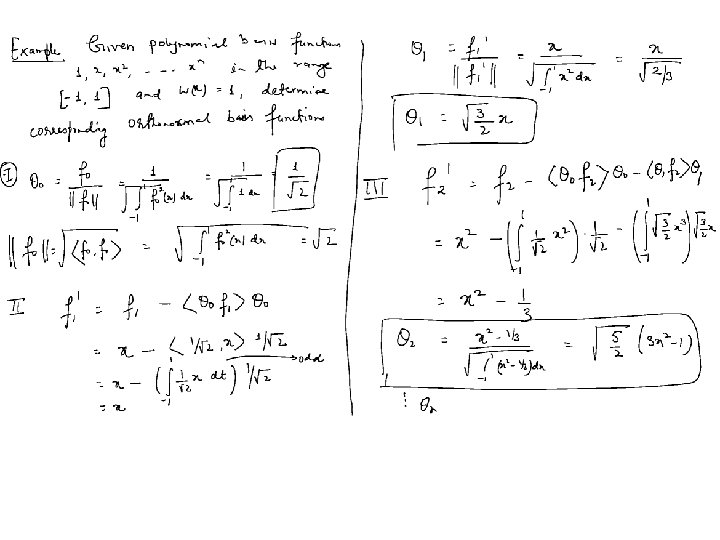 Example Given polynomial basis functions
1, x, x², --- xⁿ in the range
[-1, 1] and w(x) = 1, determine
corresponding orthonormal basis functions
I θ₀ = f₀/||f₀|| = 1/√(∫₋₁¹ f₀²(x) dx) = 1/√(∫₋₁¹ 1 dx) = 1/√2
||f₀|| = √<f₀, f₀> = √(∫₋₁¹ f₀²(x) dx) = √2
II f₁' = f₁ - <θ₀ f₁> θ₀
= x - <1/√2, x> 1/√2
→ odd
= x - (∫₋₁¹ 1/√2 x dt) 1/√2
= x
θ₁ = f₁'/||f₁'|| = x/√(∫₋₁¹ x² dx) = x/√(2/3)
θ₁ = √(3/2) x
III f₂' = f₂ - <θ₀ f₂> θ₀ - <θ₁ f₂> θ₁
= x² - (∫₋₁¹ 1/√2 x²) · 1/√2 - (∫₋₁¹ √(3/2) x³) √(3/2) x
= x² - 1/3
θ₂ = (x² - 1/3)/√(∫₋₁¹ (x² - 1/3) dx) = √(5/2) (3x² - 1)